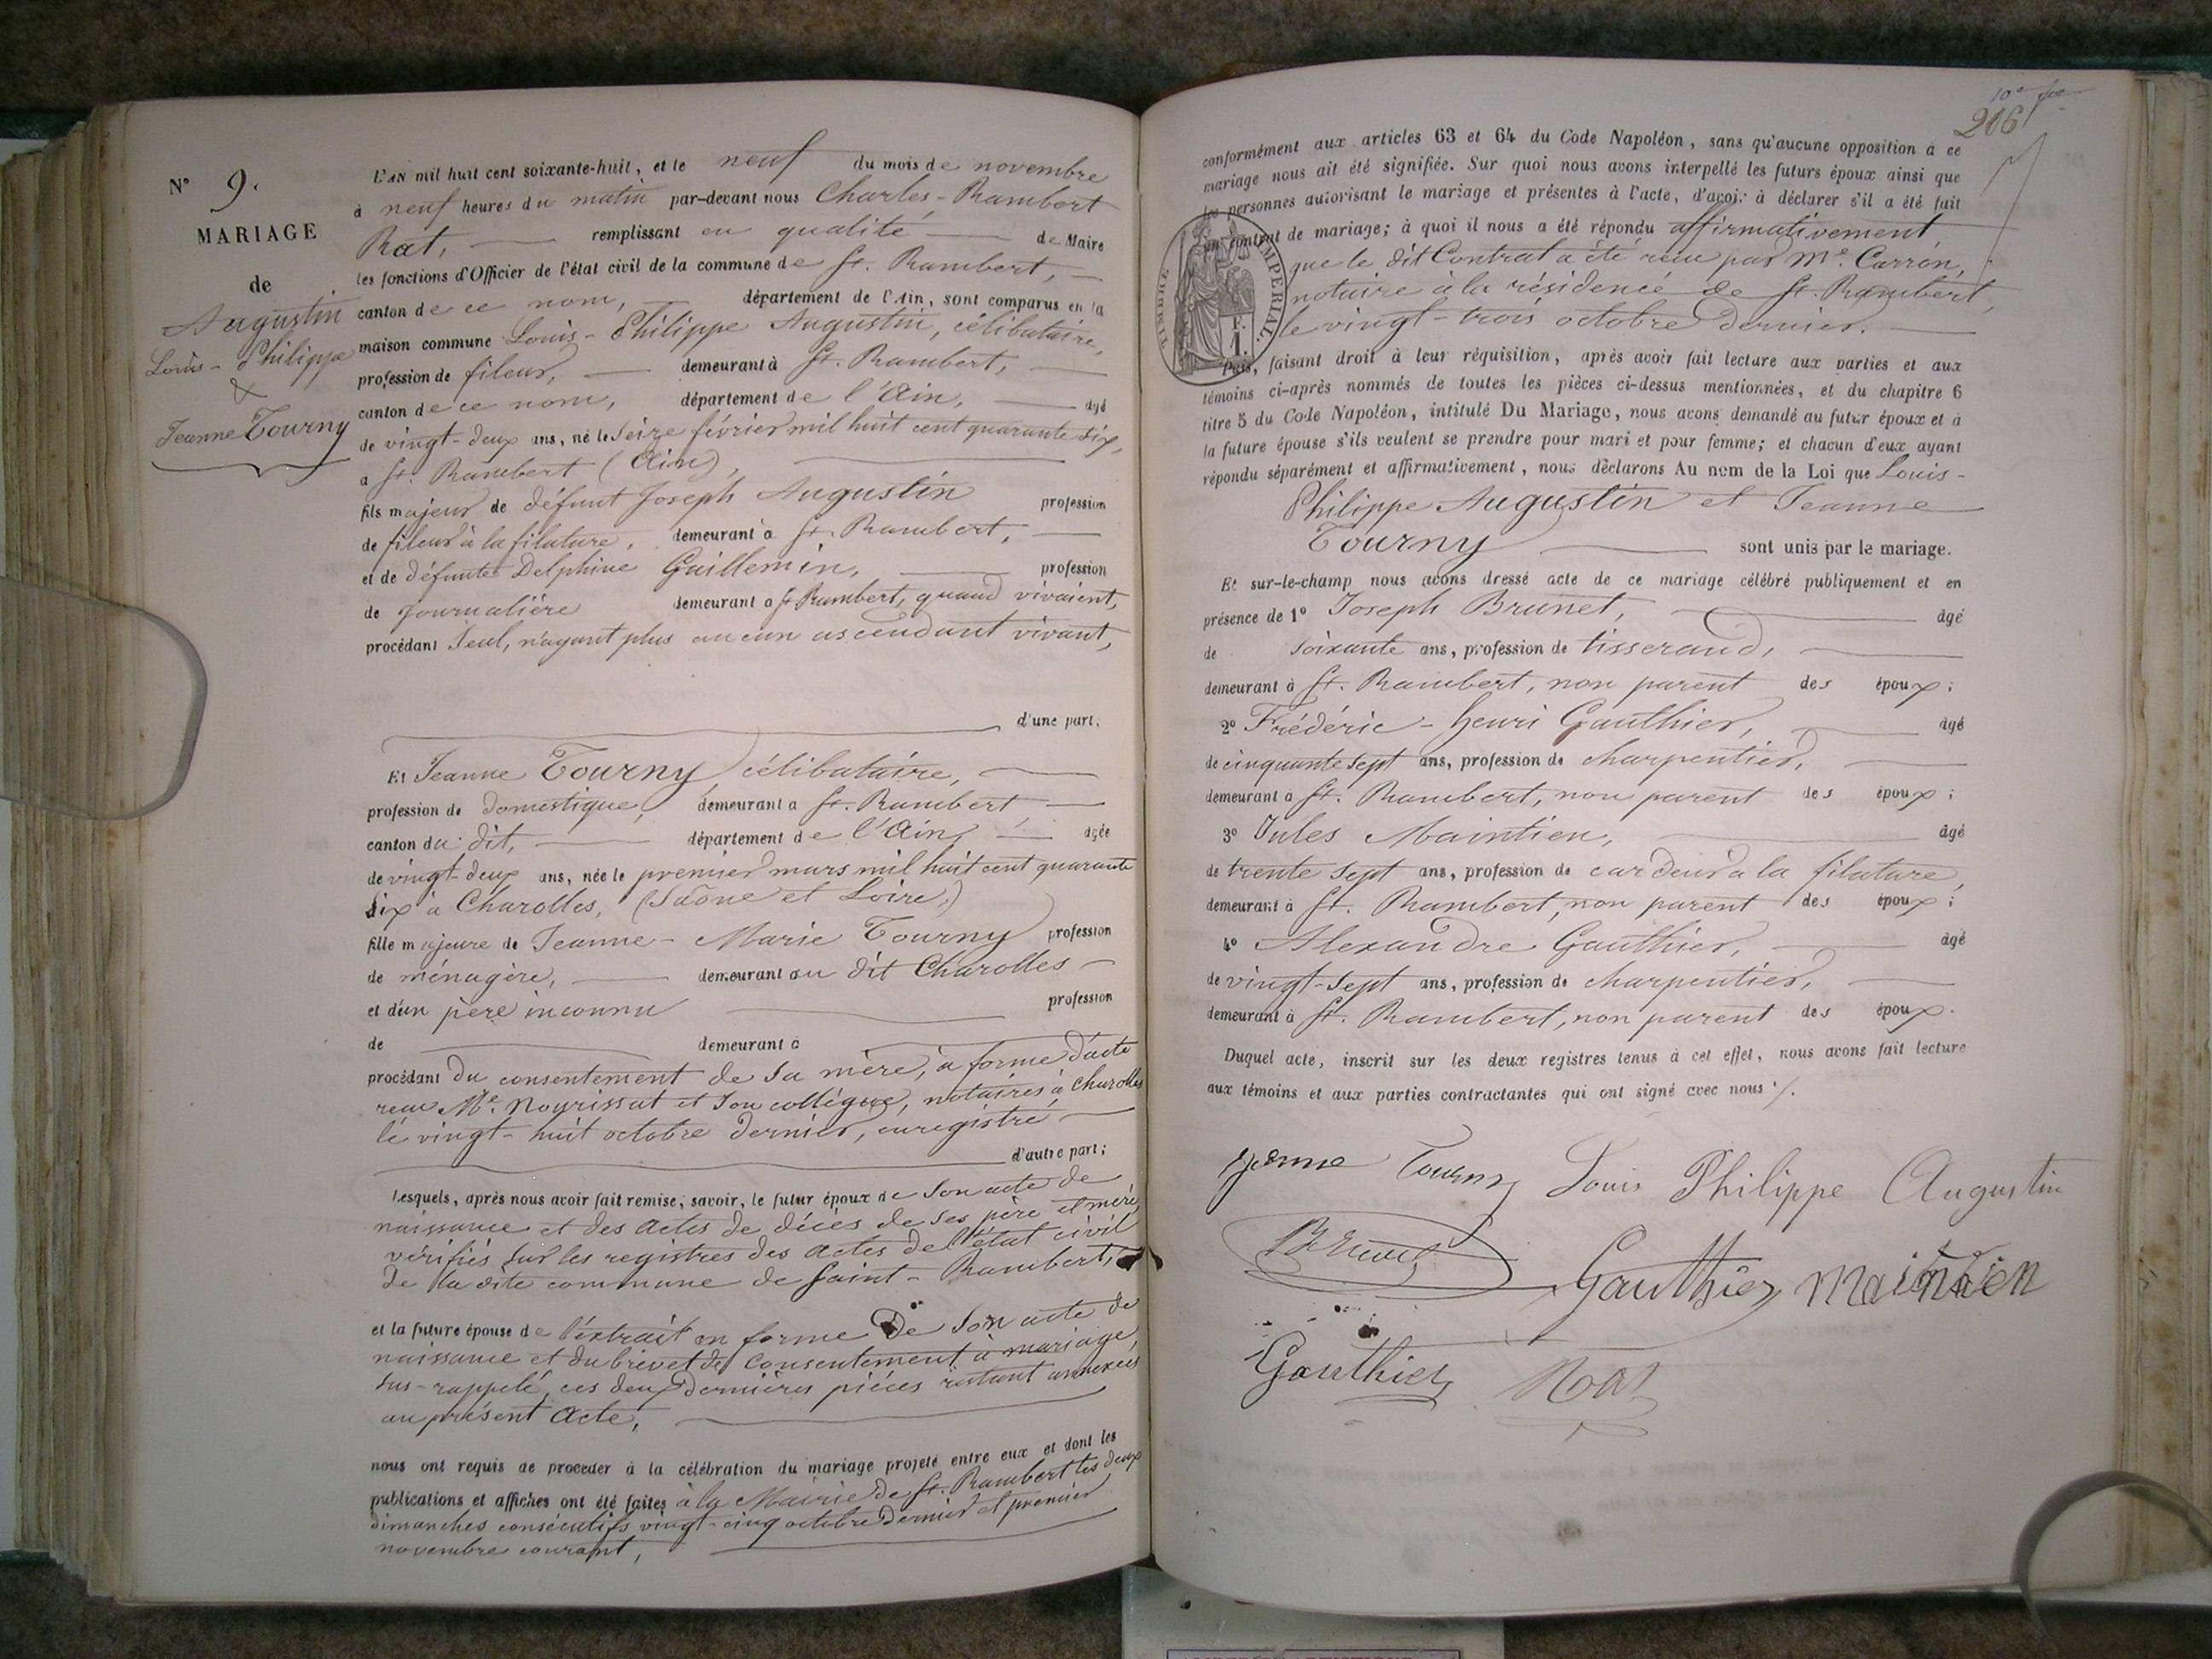 N° 9.
MARIAGE
de
Augustin
Louis-Philippe
&
Jeanne Tourny
L'AN mil huit cent soixante-huit, et le neuf du mois de novembre
à neuf heures du matin par-devant nous Charles-Rambert
Rat, remplissant en qualité de Maire
les fonctions d'Officier de l'état civil de la commune de St. Rambert,
canton de ce nom, département de l'Ain, sont comparus en la
maison commune Louis-Philippe Augustin, célibataire,
profession de fileur, demeurant à St. Rambert,
canton de ce nom, département de l'Ain, agé
de vingt-deux ans, né le Seize février mil huit cent quarante six,
a St. Rambert (Ain),
fils majeur de défunt Joseph Augustin profession
de fileur à la filature, demeurant à St. Rambert,
et de défunte Delphine Guillemin, profession
de journalière demeurant a St Rambert, quand vivaient,
procédant Seul, n'ayant plus aucun ascendant vivant,
d'une part;
Et Jeanne Tourny célibataire,
profession de domestique, demeurant a St. Rambert,
canton du dit, département de l'Ain, agée
de vingt-deux ans, née le premier mars mil huit cent quarante
Six à Charolles, (Saône et Loire,)
fille majeure de Jeanne-Marie Tourny profession
de ménagère, demeurant au dit Charolles
et d'un père inconnu profession
de demeurant à
procédant du consentement de sa mère, à forme d'acte
reçu Me. Nourissat et Son collègue, notaires à Charolles
le vingt-huit octobre dernier, enregistré
d'autre part;
Lesquels, après nous avoir fait remise, savoir, le futur époux de Son acte de
naissance et des actes de décès de ses père et mère
vérifiés sur les registres des actes de l'état civil
de la dite commune de Saint-Rambert,
et la future épouse de l'extrait en forme de Son acte de
naissance et du brevet de consentement à mariage,
sus-rappelé, ces deux dernières pièces restant annexées
au présent acte,
nous ont requis de procéder à la célébration du mariage projeté entre eux et dont les
publications et affiches ont été faites à la Mairie de St. Rambert les deux
dimanches consécutifs vingt-cinq octobre dernier et premier
novembre courant,
206
conformément aux articles 63 et 64 du Code Napoléon, sans qu'aucune opposition à ce
mariage nous ait été signifiée. Sur quoi nous avons interpellé les futurs époux ainsi que
les personnes autorisant le mariage et présentes à l'acte, d'avoir à déclarer s'il a été fait
un contrat de mariage; à quoi il nous a été répondu affirmativement
que le dit Contrat a été reçu par Me. Carron,
notaire à la résidence de St. Rambert,
le vingt-trois octobre dernier.
TIMBRE IMPERIAL.
F.
1.
Puis, faisant droit à leur réquisition, après avoir fait lecture aux parties et aux
témoins ci-après nommés de toutes les pièces ci-dessus mentionnées, et du chapitre 6
titre 5 du Code Napoléon, intitulé Du Mariage, nous avons demandé au futur époux et à
la future épouse s'ils veulent se prendre pour mari et pour femme; et chacun d'eux ayant
répondu séparément et affirmativement, nous déclarons Au nom de la Loi que Louis-
Philippe Augustin et Jeanne
Tourny sont unis par le mariage.
Et sur-le-champ nous avons dressé acte de ce mariage célébré publiquement et en
présence de 1° Joseph Brunet, âgé
de soixante ans, profession de tisserand,
demeurant à St. Rambert, non parent des époux;
2° Frédéric-henri Gauthier, âgé
de cinquante sept ans, profession de charpentier,
demeurant a St. Rambert, non parent des époux;
3° Jules Maintien, âgé
de trente sept ans, profession de cardeur a la filature,
demeurant à St. Rambert, non parent des époux;
4° Alexandre Gauthier, âgé
de vingt-sept ans, profession de charpentier,
demeurant à St. Rambert, non parent des époux.
Duquel acte, inscrit sur les deux registres tenus à cet effet, nous avons fait lecture
aux témoins et aux parties contractantes qui ont signé avec nous ./.
Tourny Louis Philippe Augustin
Brunet Gauthier Maintien
Gauthier Rat